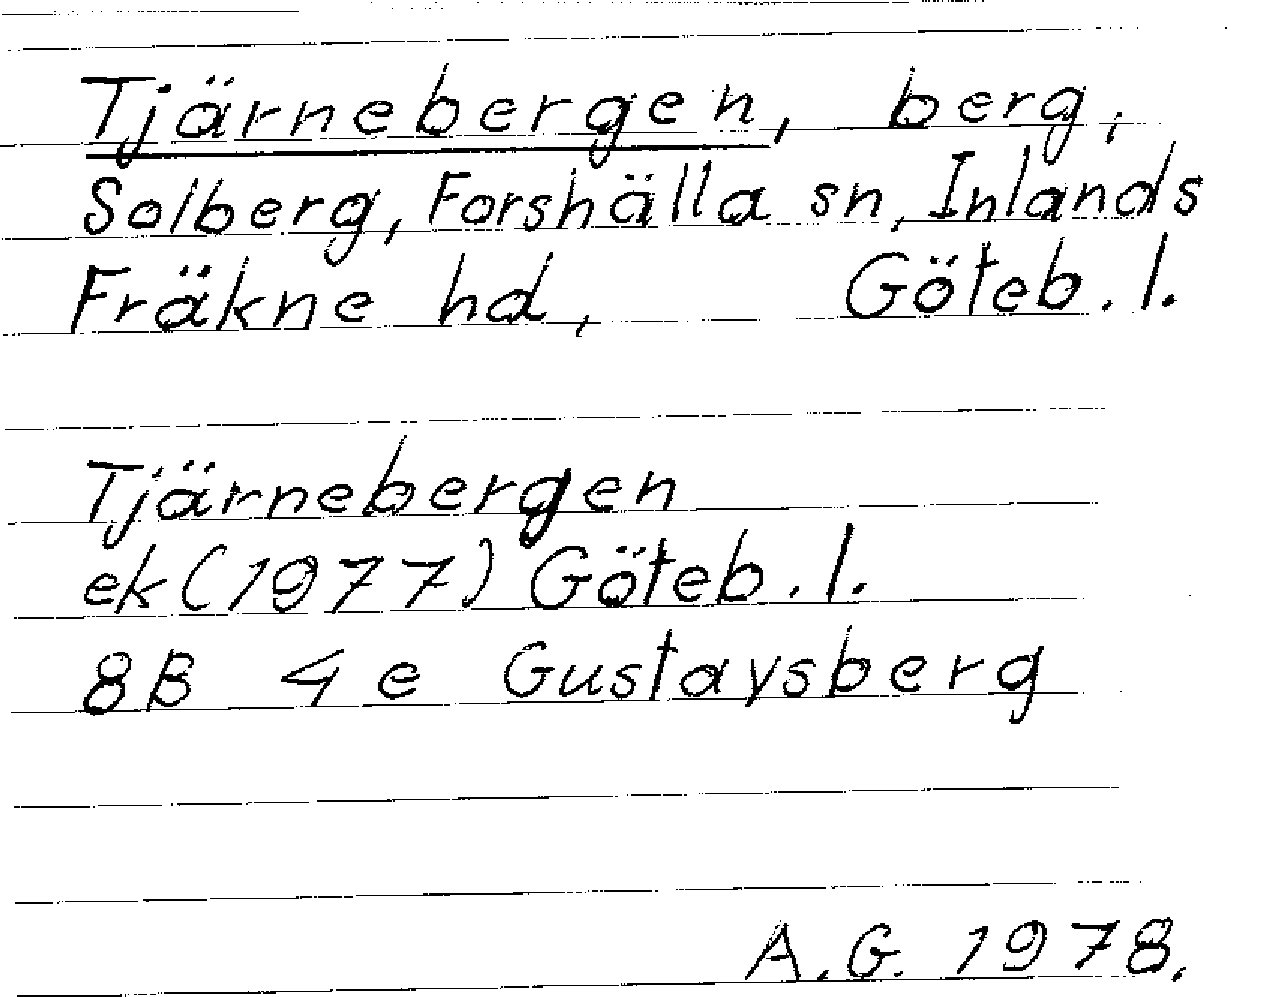 Tjärnebergen, berg,
Solberg, Forshälla sn, Inlands
Fräkne hd, Göteb. l.
Tjärnebergen
ek (1977) Göteb. l.
8B 4e Gustavsberg
A.G. 1978.